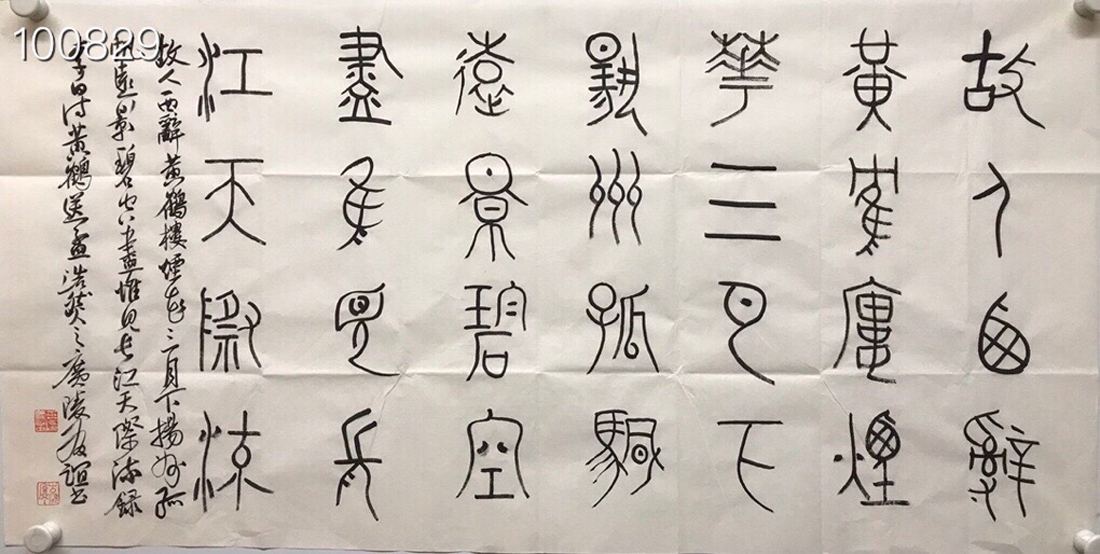 100829
故人西辭
黃隺廔煙
華三月下
敭州孤颿
遠景碧空
盡隹見長
江天際流
故人西辭黃鶴樓煙花三月下揚州孤
帆遠景碧空盡惟見長江天際流錄
李白詩黃鶴送孟浩然之廣陵友誼書